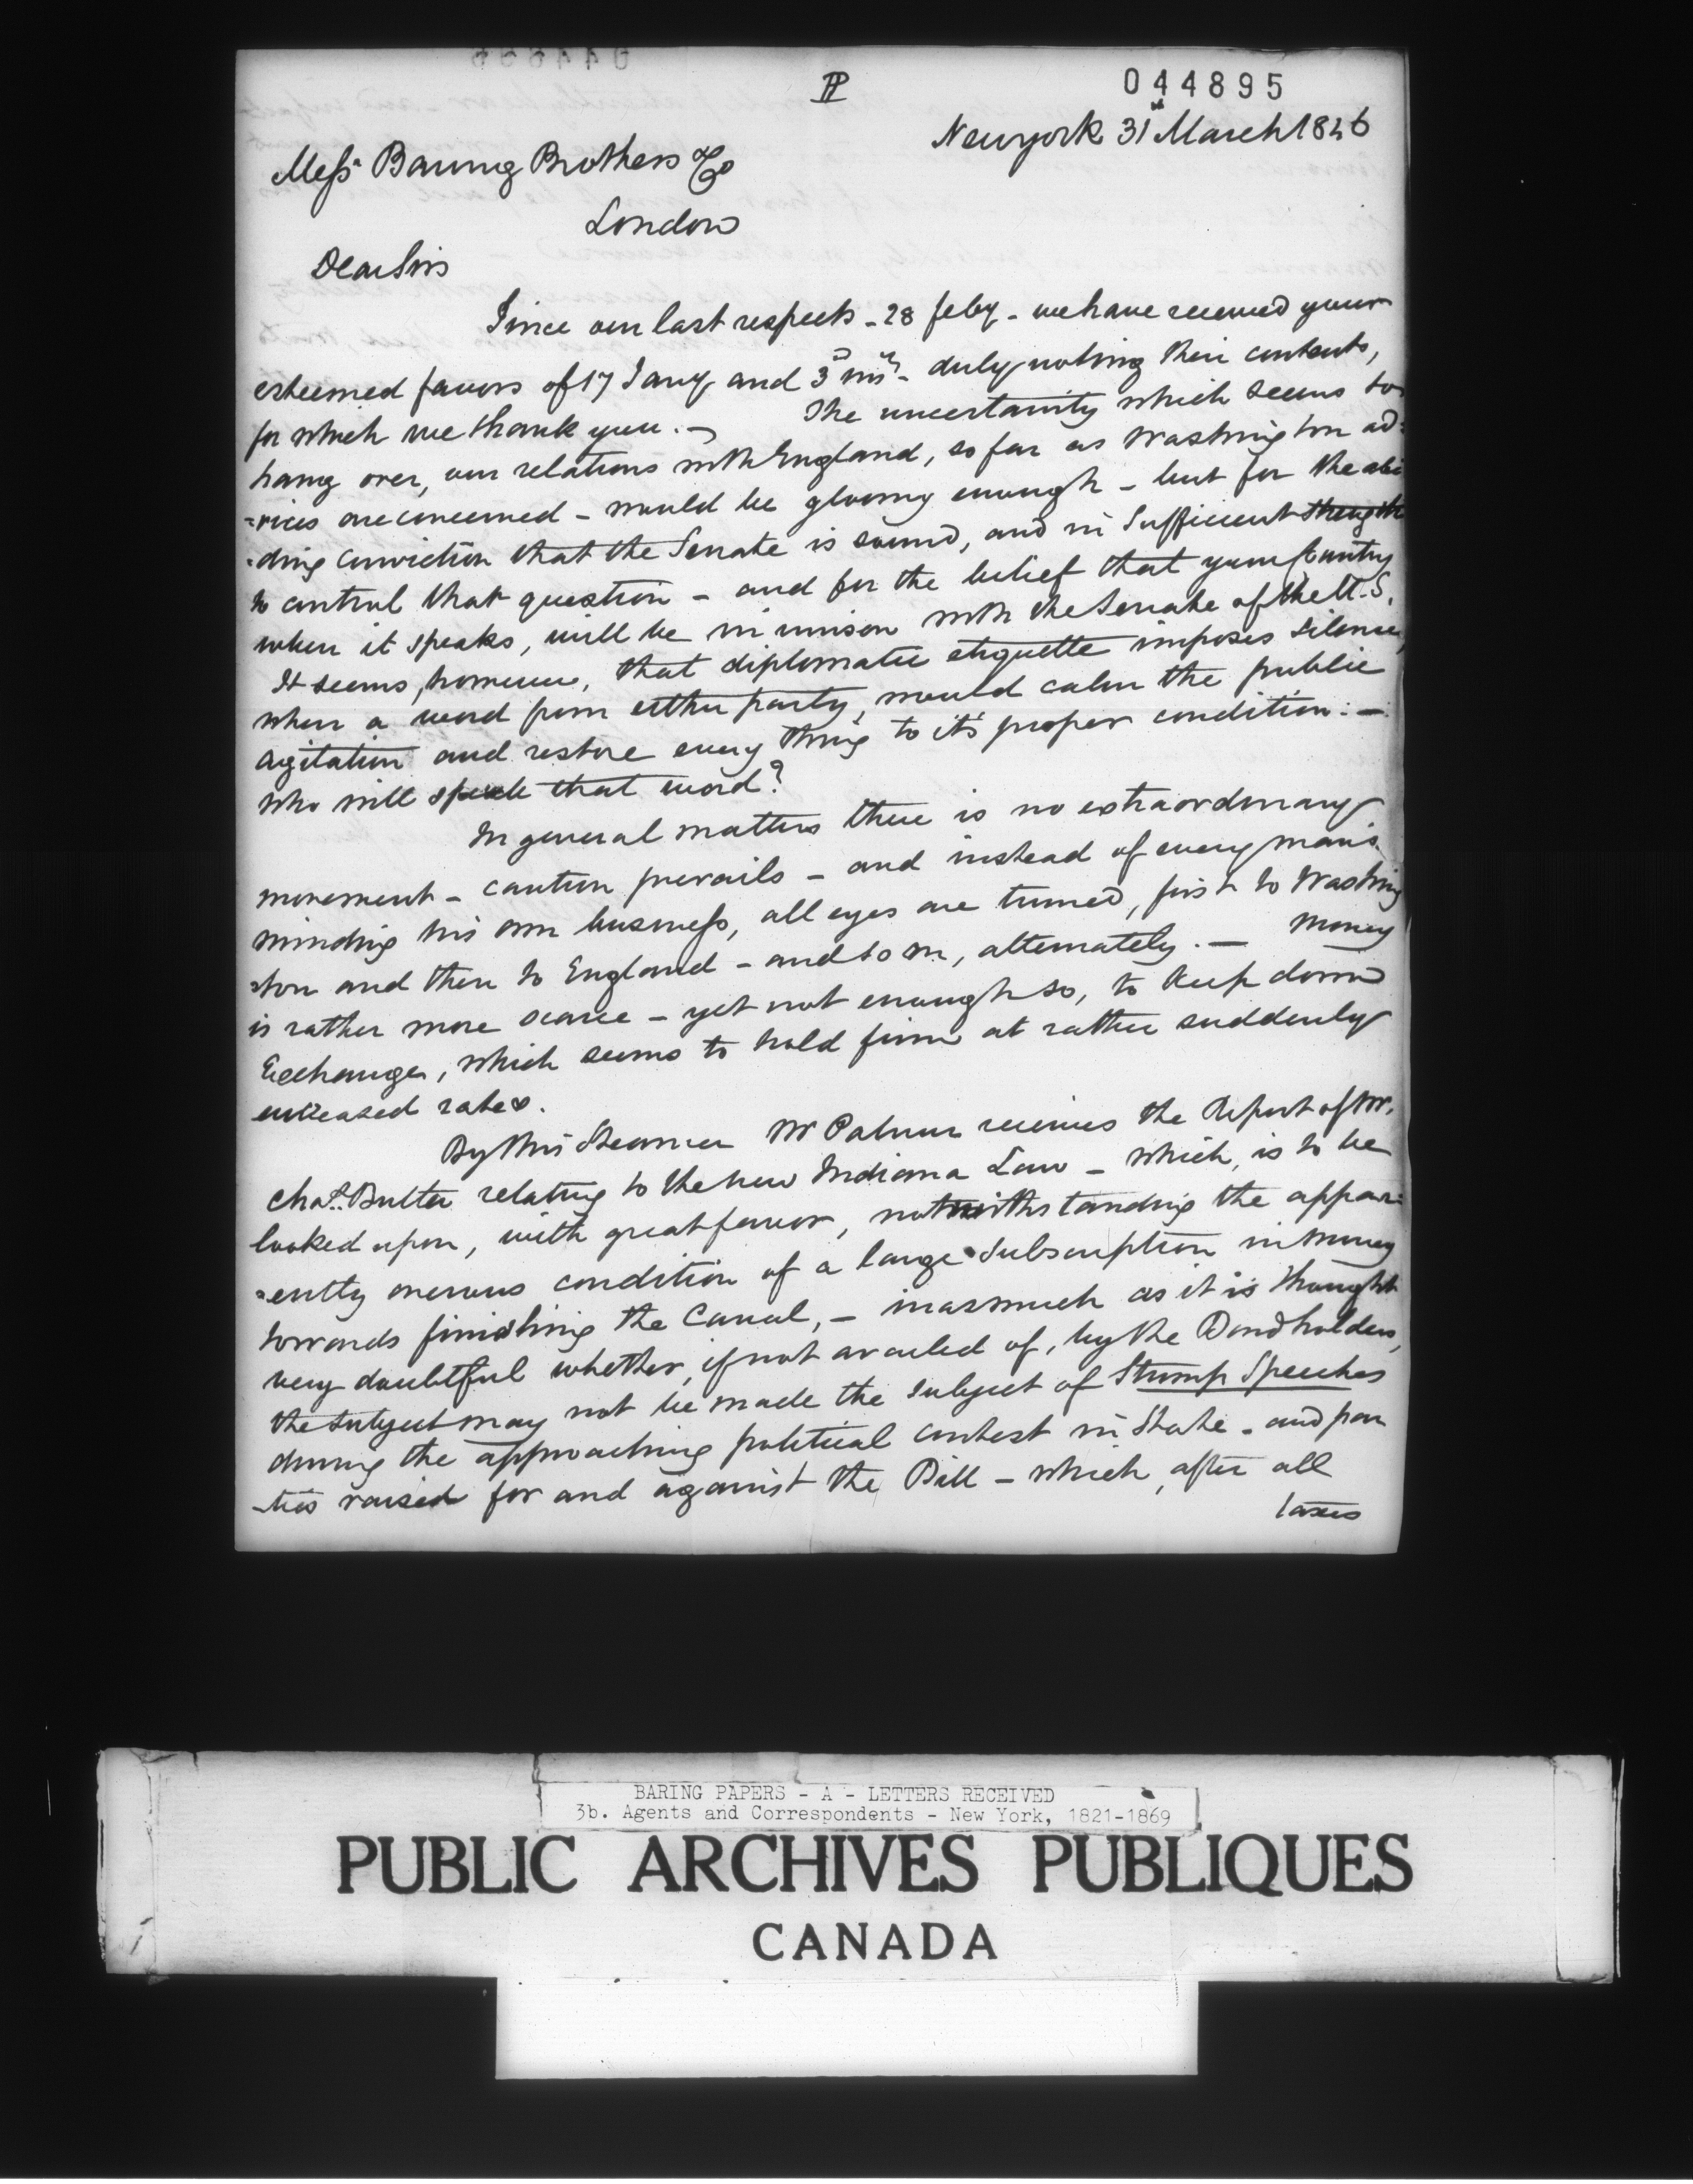 044895
New york 31st March 1846
Mess Baring Brothers & Co
London
Dear Sirs
Since our last respects - 28 feby - we have received your
esteemed favors of 17 Jany and 3d ins - duly noting their contents,
for which we thank you. - The uncertainty which seems to
hang over, our relations with England, so far as Washington ad=
=vices are concerned - would be gloomy enough - but for the abi
=ding conviction that the Senate is sound, and in sufficient strength
to control that question - and for the belief that your Country
when it speaks, will be in unison with the Senate of the U.S.
It seems, however, that diplomatic etiquette imposes silence,
when a word from either party, would calm the public
agitation and restore every thing to it's proper condition: -
who will speak that word?
In general matters there is no extraordinary
movement - caution prevails - and instead of every man's
minding his own business, all eyes are turned, first to Washing
=ton and then to England - and so on, alternately. - Money
is rather more scarce - yet not enough so, to keep down
Exchange, which seems to hold firm at rather suddenly
encreased rates.
By this Steamer Mr Palmer receives the Report of Mr.
Chas. Butler relating to the new Indiana Law - which, is to be
looked upon, with great favor, notwithstanding the appar=
=ently onerous condition of a large subscription in money
towards finishing the Canal, - inasmuch as it is thought
very doubtful whether, if not availed of, by the Bondholders,
the subject may not be made the subject of Stump Speeches
during the approaching political contest in State - and par
-ties raised for and against the Bill - which, after all
taxes
BARING PAPERS - A - LETTERS RECEIVED
3b. Agents and Correspondents - New York, 1821-1869
PUBLIC ARCHIVES PUBLIQUES
CANADA